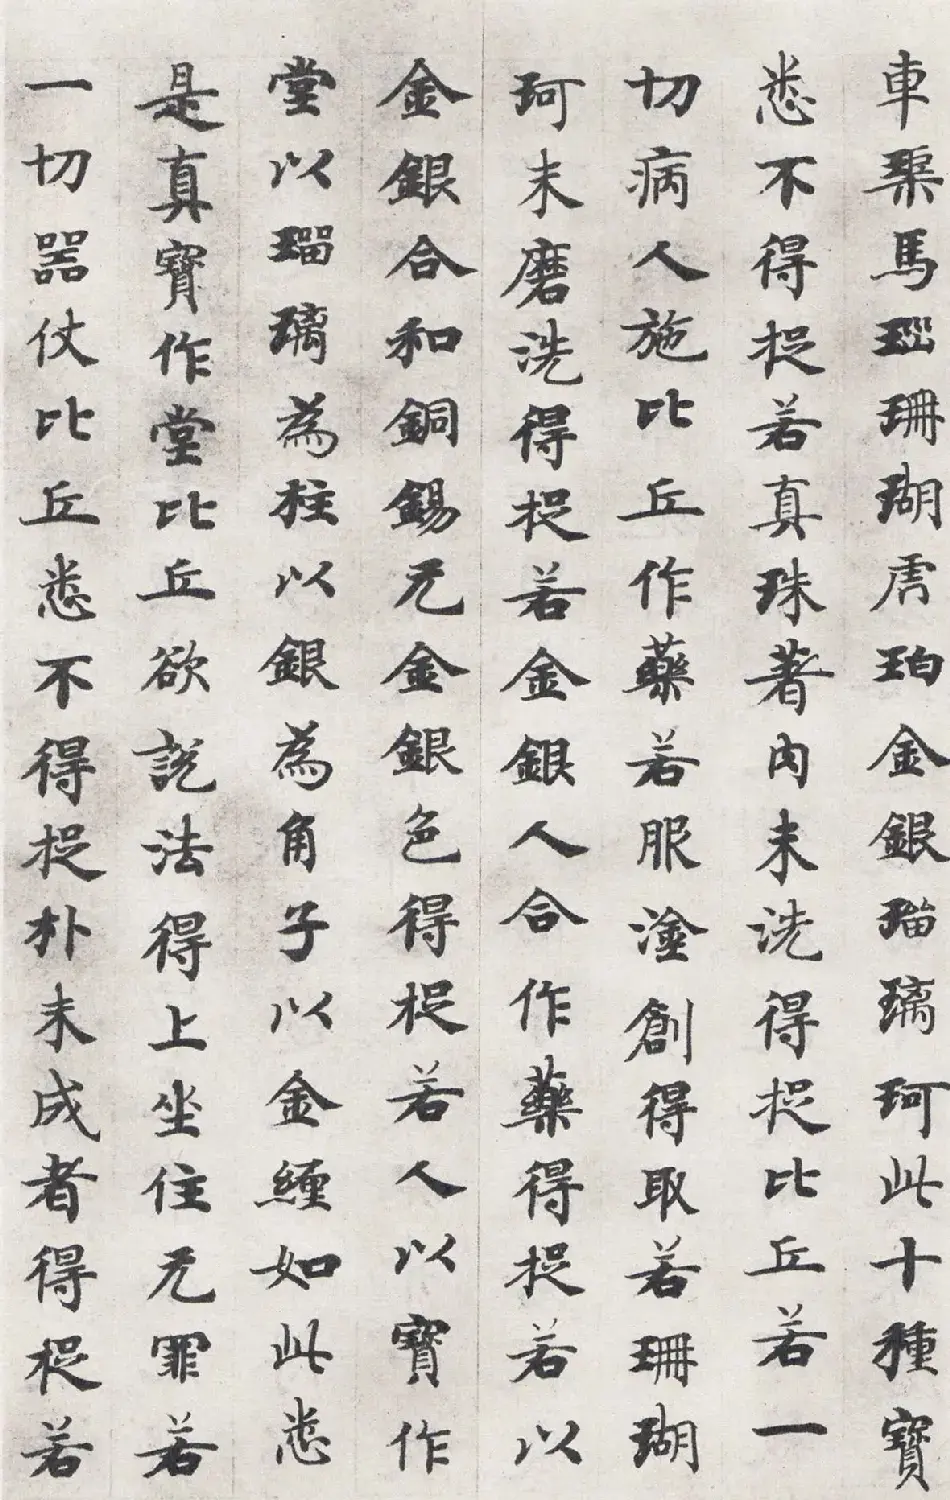 車璖馬瑙珊瑚虎珀金銀瑠璃珂此十種寶
悉不得捉若真珠著內未洗得捉比丘若一
切病人施比丘作藥若服塗創得取若珊瑚
珂末磨洗得捉若金銀人合作藥得捉若以
金銀合和銅錫无金銀色得捉若人以寶作
堂以瑠璃為柱以銀為角子以金纏如此悉
是真寶作堂比丘欲說法得上坐住无罪若
一切器仗比丘悉不得捉朴未成者得捉若